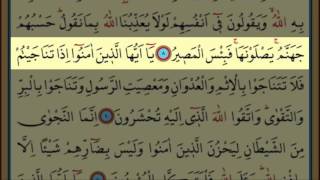 بِهِ اللّٰهُ وَيَقُولُونَ فِي اَنْفُسِهِمْ لَوْلَا يُعَذِّبُنَا اللّٰهُ بِمَا نَقُولُ حَسْبُهُمْ
جَهَنَّمُ يَصْلَوْنَهَا فَبِئْسَ الْمَصِيرُ ﴿٨﴾ يَٓا اَيُّهَا الَّذِينَ اٰمَنُٓوا اِذَا تَنَاجَيْتُمْ
فَلَا تَتَنَاجَوْا بِالْاِثْمِ وَالْعُدْوَانِ وَمَعْصِيَتِ الرَّسُولِ وَتَنَاجَوْا بِالْبِرِّ
وَالتَّقْوٰى وَاتَّقُوا اللّٰهَ الَّذِٓي اِلَيْهِ تُحْشَرُونَ ﴿٩﴾ اِنَّمَا النَّجْوٰى
مِنَ الشَّيْطَانِ لِيَحْزُنَ الَّذِينَ اٰمَنُوا وَلَيْسَ بِضَٓارِّهِمْ شَيْـًٔا اِلَّا